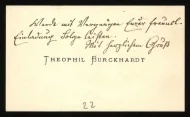 Werde mit Vergnügen Eurer freundl.
Einladung Folge leisten.
Mit herzlichem Gruß
THEOPHIL BURCKHARDT
22